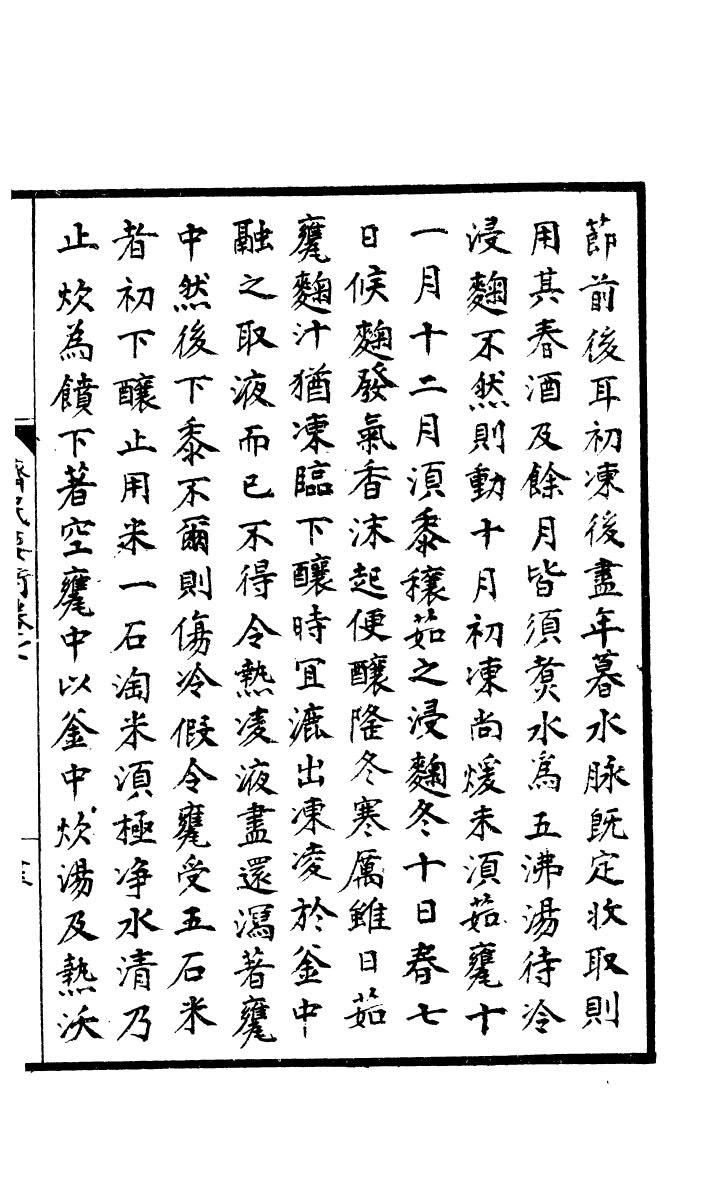 節前後耳初凍後盡年暮水脉旣定收取則
用其春酒及餘月皆須煑水爲五沸湯待冷
浸麴不然則動十月初凍尚煖未湏茹甕十
一月十二月湏黍穰茹之浸麴冬十日春七
日候麴發氣香沫起便釀隆冬寒厲雖日茹
甕麴汁猶凍臨下釀時冝漉出凍凌於釜中
融之取液而已不得令熱凌液盡還瀉著甕
中然後下黍不爾則傷冷假令甕受五石米
者初下釀止用米一石淘米湏極净水清乃
止炊為饙下著空甕中以釜中炊湯及熱沃
齊民要術卷七